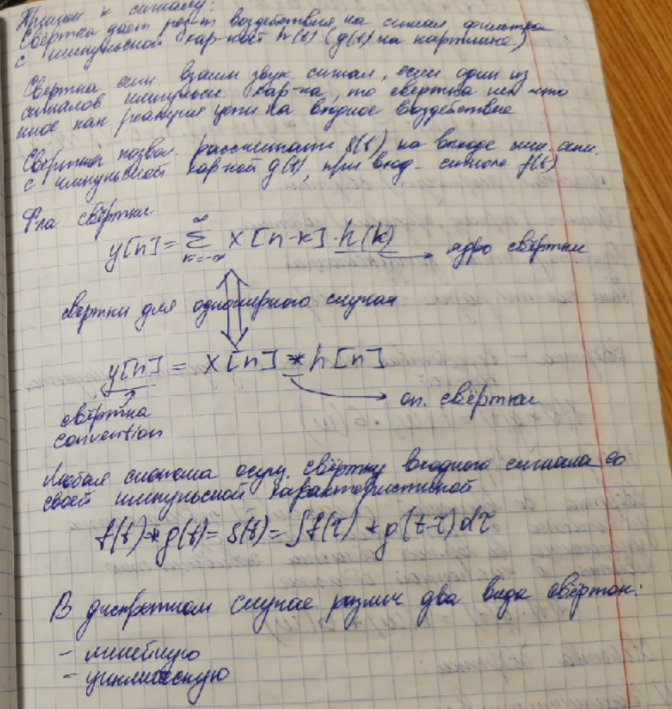 Применим к сигналу:
Свертка дает рез-т воздействия на сигнал фильтра
с импульсной хар-кой h(t) (g(t) на картинке)
Свертка если взаим звук. сигнал, если один из
сигналов импульсн хар-ка, то свертка не что
иное как реакция цепи на входное воздействие
Сверткой позвол. рассчитать s(t), на выходе
с импульсной хар-кой g(t), при вход. сигнале f(t)
Фла свёртки
y[n] = ∞ Σ k=-∞ x[n-k] · h(k) → ядро свёртки
свертки для одномерного случая
y[n] = x[n] * h[n]
→ оп. свёртки
свёртка
convention
Любая система осущ. свёртку входного сигнала со
своей импульсной характеристикой
f(t) * g(t) = s(t) = ∫f(τ) * g(t-τ) dτ
В дискретном случае различ два вида свёрток:
- линейную
- циклическую